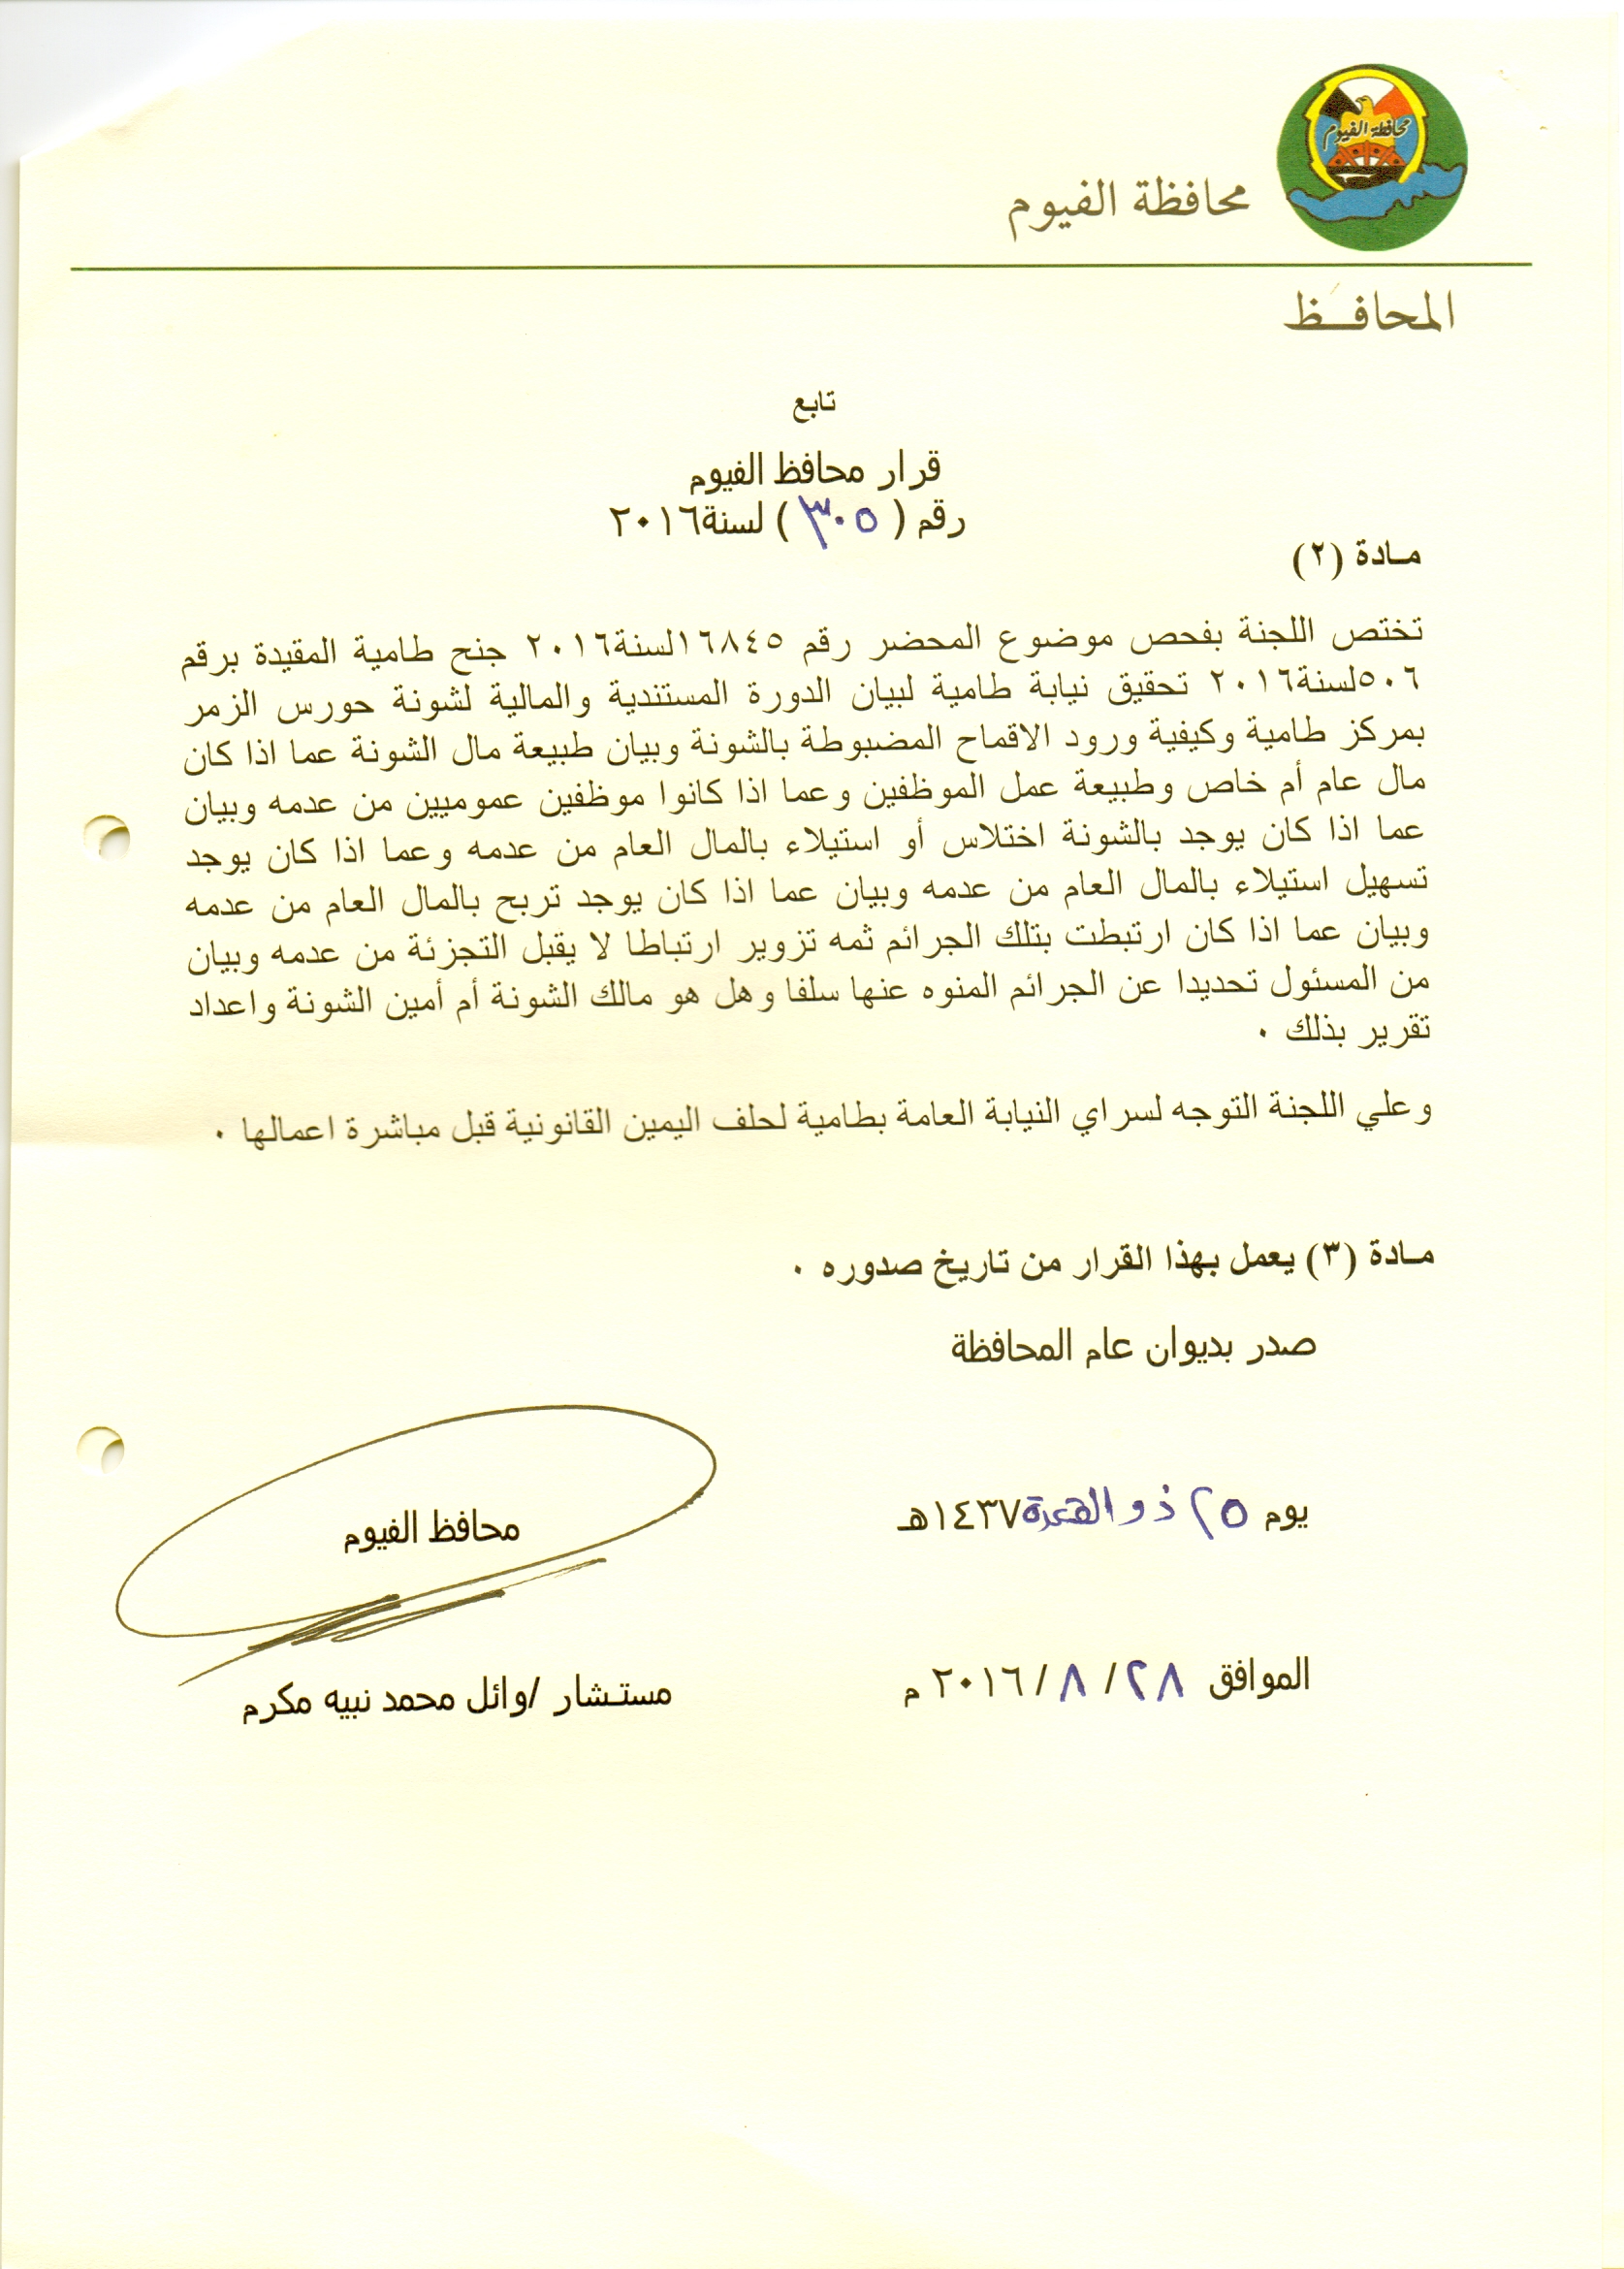 محافظة الفيوم
محافظة الفيوم
المحافــظ
تابع
قرار محافظ الفيوم
رقم ( ٣٠٥ ) لسنة٢٠١٦
مـادة (٢)
تختص اللجنة بفحص موضوع المحضر رقم ١٦٨٤٥لسنة٢٠١٦ جنح طامية المقيدة برقم
٥٠٦لسنة٢٠١٦ تحقيق نيابة طامية لبيان الدورة المستندية والمالية لشونة حورس الزمر
بمركز طامية وكيفية ورود الاقماح المضبوطة بالشونة وبيان طبيعة مال الشونة عما اذا كان
مال عام أم خاص وطبيعة عمل الموظفين وعما اذا كانوا موظفين عموميين من عدمه وبيان
عما اذا كان يوجد بالشونة اختلاس أو استيلاء بالمال العام من عدمه وعما اذا كان يوجد
تسهيل استيلاء بالمال العام من عدمه وبيان عما اذا كان يوجد تربح بالمال العام من عدمه
وبيان عما اذا كان ارتبطت بتلك الجرائم ثمه تزوير ارتباطا لا يقبل التجزئة من عدمه وبيان
من المسئول تحديدا عن الجرائم المنوه عنها سلفا وهل هو مالك الشونة أم أمين الشونة واعداد
تقرير بذلك ٠
وعلي اللجنة التوجه لسراي النيابة العامة بطامية لحلف اليمين القانونية قبل مباشرة اعمالها ٠
مـادة (٣) يعمل بهذا القرار من تاريخ صدوره ٠
صدر بديوان عام المحافظة
يوم ٢٥ ذو القعدة ١٤٣٧هـ
محافظ الفيوم
الموافق ٢٨ / ٨ / ٢٠١٦ م
مستشار /وائل محمد نبيه مكرم